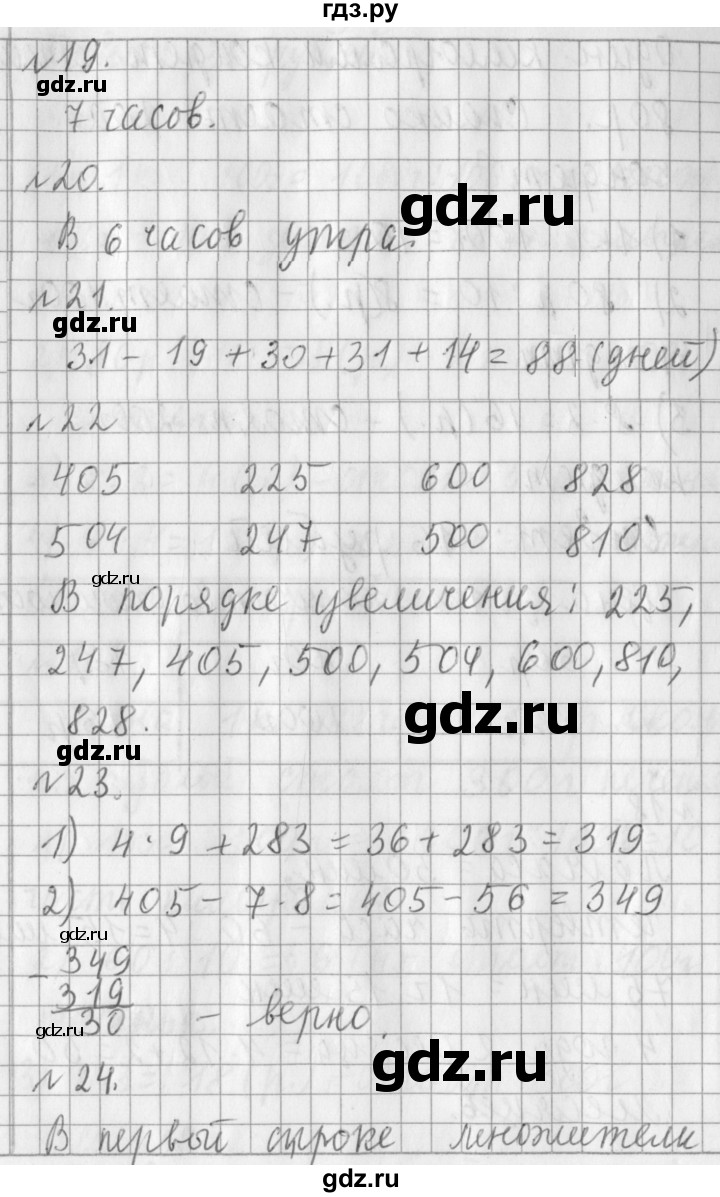 гдз.ру
№19.
gdz.ru
7 часов.
№20.
gdz.ru
В 6 часов утра.
№21.
gdz.ru
31 - 19 + 30 + 31 + 14 = 88 (дней)
№22
405 225 600 828
504 247 500 810
gdz.ru
В порядке увеличения: 225,
247, 405, 500, 504, 600, 810,
828.
gdz.ru
gdz.ru
№23.
1) 4 · 9 + 283 = 36 + 283 = 319
2) 405 - 7 · 8 = 405 - 56 = 349
gdz.ru
- 349
319
gdz.ru
30 - верно.
gdz.ru
№24.
В первый строке множители
gdz.ru